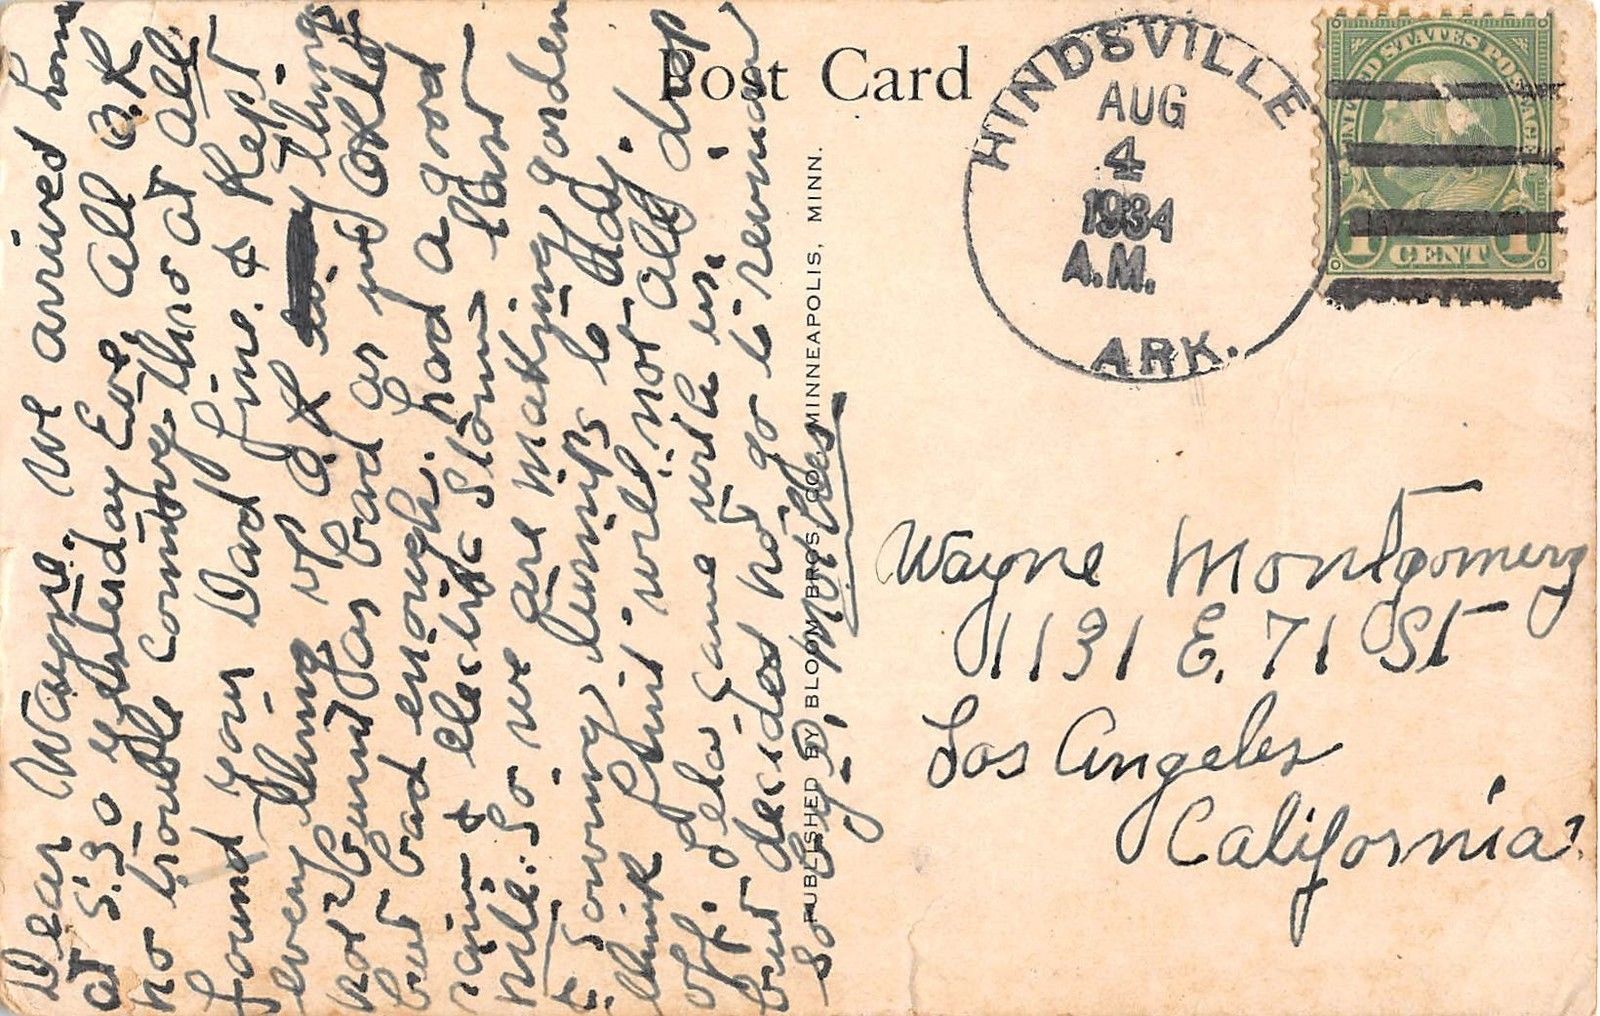 Post Card
HINDSVILLE
AUG
4
1934
A.M.
ARK.
UNITED STATES POSTAGE
1 CENT 1
PUBLISHED BY BLOOM BROS. CO. MINNEAPOLIS, MINN.
Dear Wayne. We arrived home
at 5:30 yesterday Eve all O.K
no trouble coming thro at all.
found your Dad fine. & kept
every thing up O.K. every thing
not burnt as bad as out
but bad enough. had a good
rain & electric storm last
nite. So we are making garden
& sowing turnips to day.
think fruit will not all drop
off. Dela came with us.
but decided not go to
So by-by, Mother
Wayne Montgomery
1131 E. 71 St
Los Angeles
California